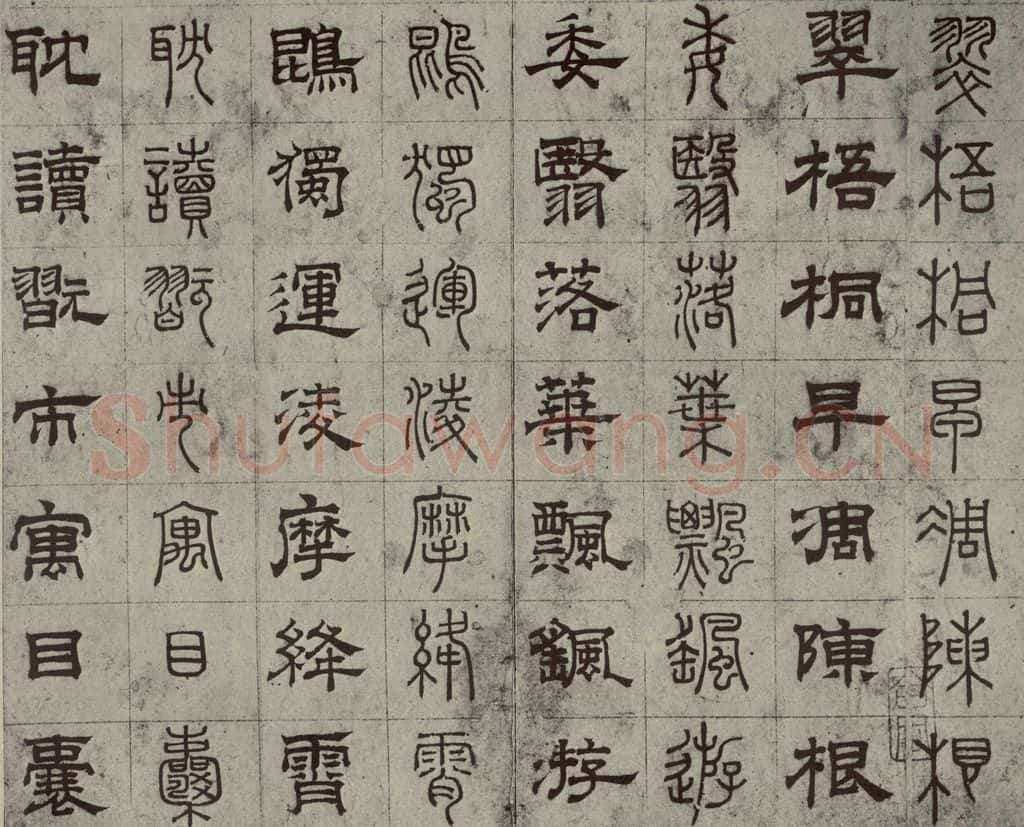 翠梧桐早凋陳根
翠梧桐早凋陳根
委翳落葉飄颻遊
委翳落葉飄颻游
鵾獨運淩摩絳霄
鵾獨運淩摩絳霄
耽讀翫市寓目囊
耽讀翫市寓目囊
Shufawang.CN